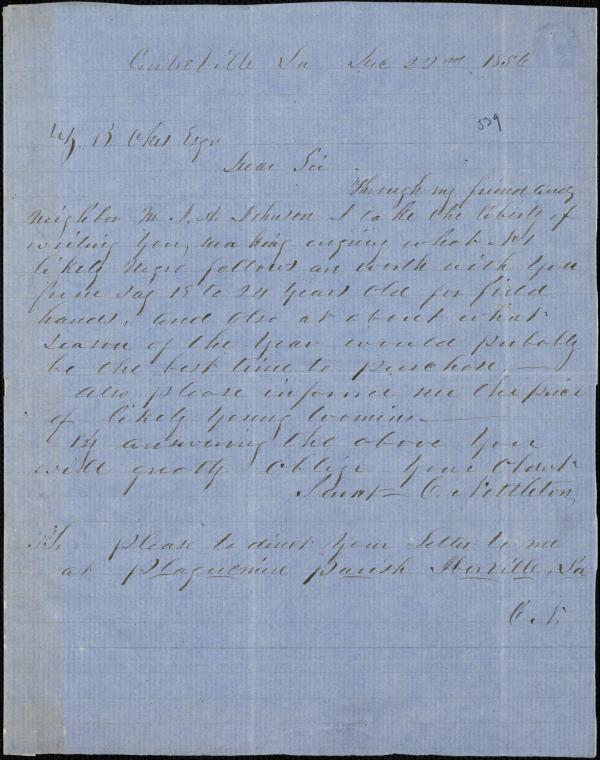 Centreville La Dec 22nd 1856
529
Z B Oakes Esqr
Dear Sir
Through my friend and
neighbor Mr J. A. Johnson I take the liberty of
writing you, making enquiry what No 1
likely negro fellows are worth with you
from say 18 to 24 years old for field
hands, and also at about what
season of the year would probably
be the best time to purchase —
Also please informe me the price
of likely young womins —
By answering the above you
will greatly oblige your Obent
Servant C. Nettleton
Ps please to direct your letter to me
at Plaquemine Parish Iberville, La
C. N.